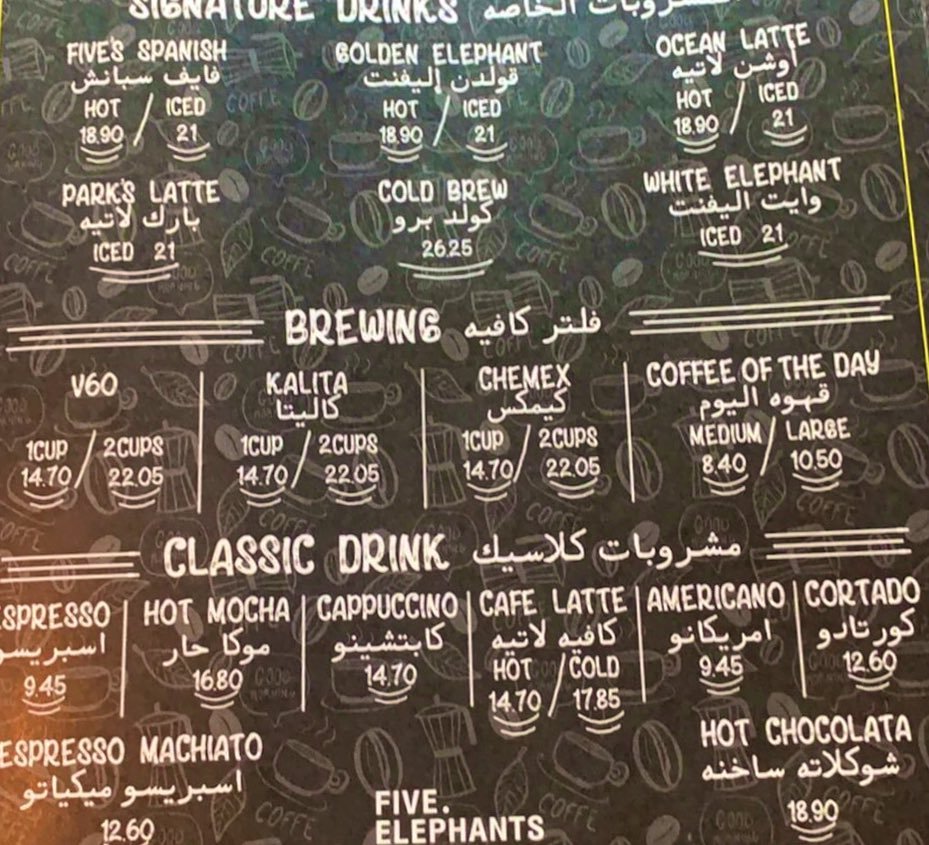 SIGNATURE DRINKS مشروبات الخاصه
FIVE'S SPANISH
فايف سبانش
HOT / ICED
18.90 / 21
GOLDEN ELEPHANT
قولدن إليفنت
HOT / ICED
18.90 / 21
OCEAN LATTE
أوشن لاتيه
HOT / ICED
18.90 / 21
PARK'S LATTE
بارك لاتيه
ICED 21
COLD BREW
كولد برو
26.25
WHITE ELEPHANT
وايت اليفنت
ICED 21
BREWING فلتر كافيه
V60
1CUP / 2CUPS
14.70 / 22.05
KALITA
كاليتا
1CUP / 2CUPS
14.70 / 22.05
CHEMEX
كيمكس
1CUP / 2CUPS
14.70 / 22.05
COFFEE OF THE DAY
قهوه اليوم
MEDIUM / LARGE
8.40 / 10.50
CLASSIC DRINK مشروبات كلاسيك
ESPRESSO
اسبريسو
9.45
HOT MOCHA
موكا حار
16.80
CAPPUCCINO
كابتشينو
14.70
CAFE LATTE
كافيه لاتيه
HOT / COLD
14.70 / 17.85
AMERICANO
امريكانو
9.45
CORTADO
كورتادو
12.60
ESPRESSO MACHIATO
اسبريسو ميكياتو
12.60
HOT CHOCOLATA
شوكلاته ساخنه
18.90
FIVE.
ELEPHANTS